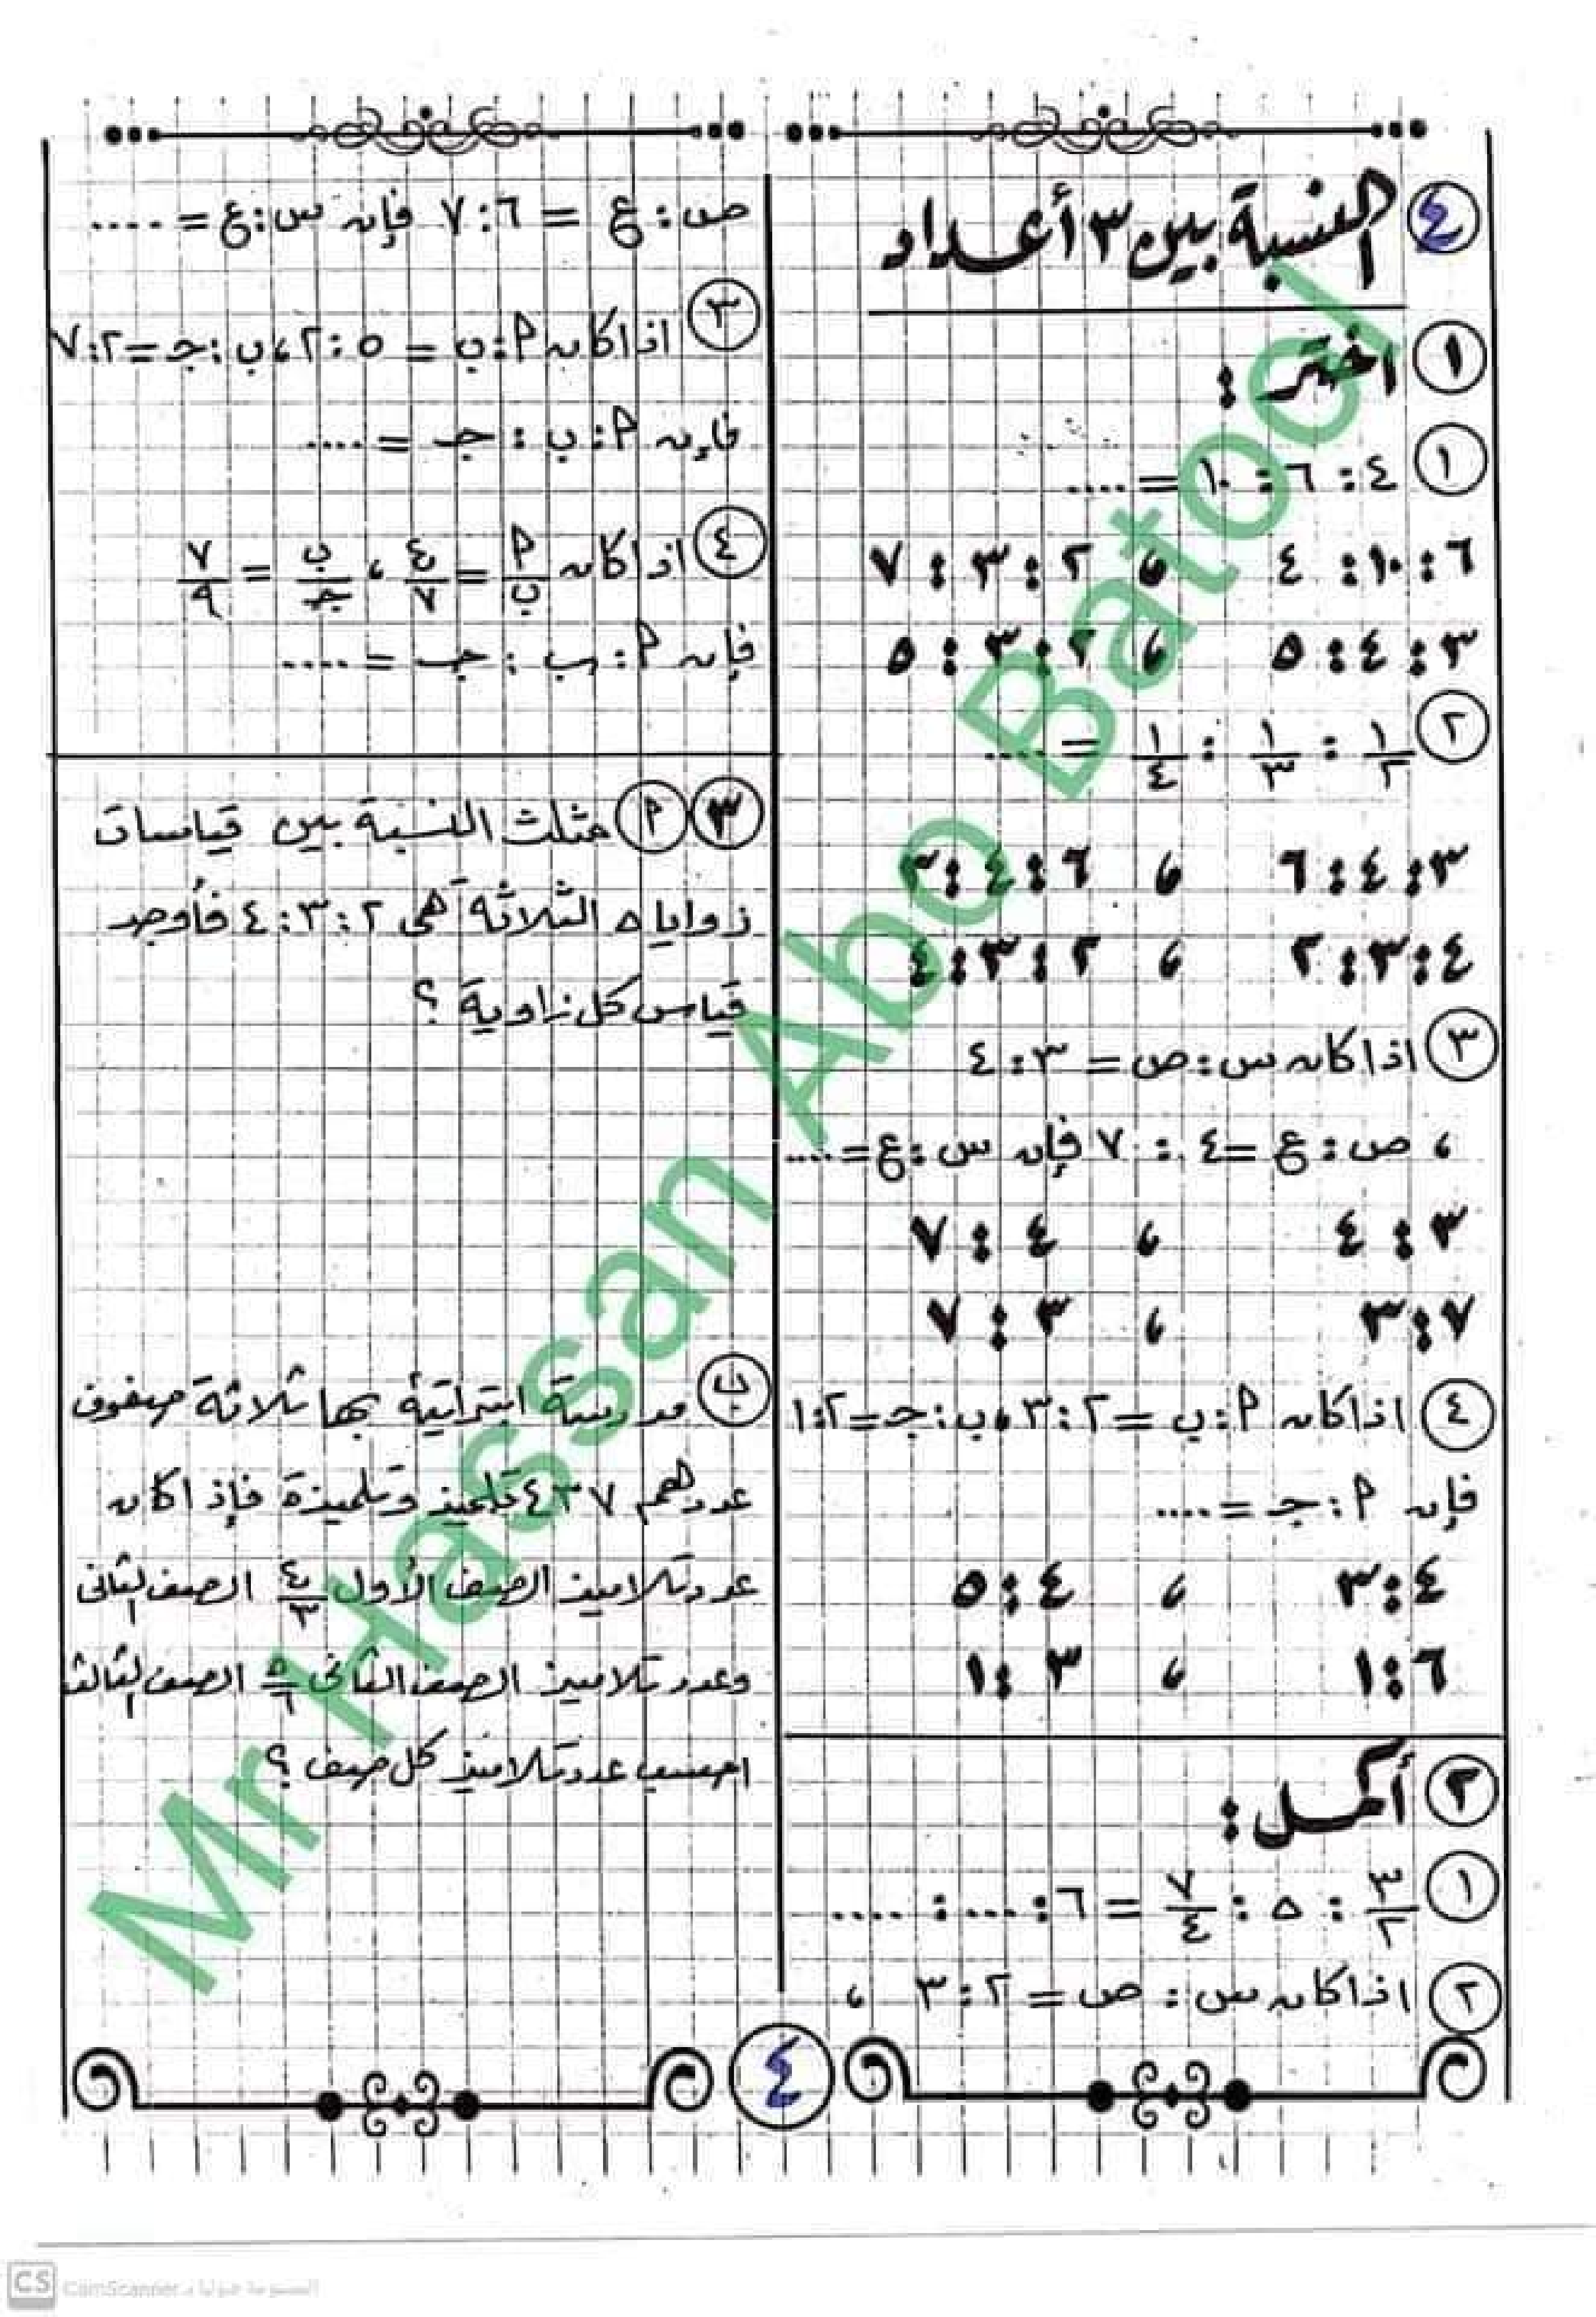 ٤ النسبة بين ٣ أعداد
١ اختر :
١ ٤ : ٦ : ١٠ = ....
٦ : ١٠ : ٤ ، ٢ : ٣ : ٧
٣ : ٤ : ٥ ، ٢ : ٣ : ٥
٢ ١/٢ : ١/٣ : ١/٤ = ....
٣ : ٤ : ٦ ، ٦ : ٤ : ٣
٤ : ٣ : ٢ ، ٢ : ٣ : ٤
٣ اذا كان س : ص = ٣ : ٤
، ص : ع = ٤ : ٧ فإن س : ع = ....
٣ : ٤ ، ٤ : ٧
٧ : ٣ ، ٣ : ٧
٤ اذا كان أ : ب = ٢ : ٣ ، ب : جـ = ٢ : ١
فإن أ : جـ = ....
٤ : ٣ ، ٤ : ٥
٦ : ١ ، ٣ : ١
٢ أكمل :
١ ٣/٢ : ٥ : ٧/٤ = ٦ : .... : ....
٢ اذا كان س : ص = ٢ : ٣ ،
ص : ع = ٦ : ٧ فإن س : ع = ....
٣ اذا كان أ : ب = ٥ : ٢ ، ب : جـ = ٢ : ٧
فإن أ : ب : جـ = ....
٤ اذا كان أ/ب = ٤/٧ ، ب/جـ = ٧/٩
فإن أ : ب : جـ = ....
٣ أ مثلث النسبة بين قياسات
زواياه الثلاثة هى ٢ : ٣ : ٤ فأوجد
قياس كل زاوية ؟
ب مدرسة ابتدائية بها ثلاثة صفوف
عددهم ٤٣٧ تلميذ وتلميذة فإذا كان
عدد تلاميذ الصف الأول ٤/٣ الصف الثانى
وعدد تلاميذ الصف الثانى ٥/٦ الصف الثالث
احسب عدد تلاميذ كل صف ؟
٤
Mr Hassan Abo Batool
CS CamScanner